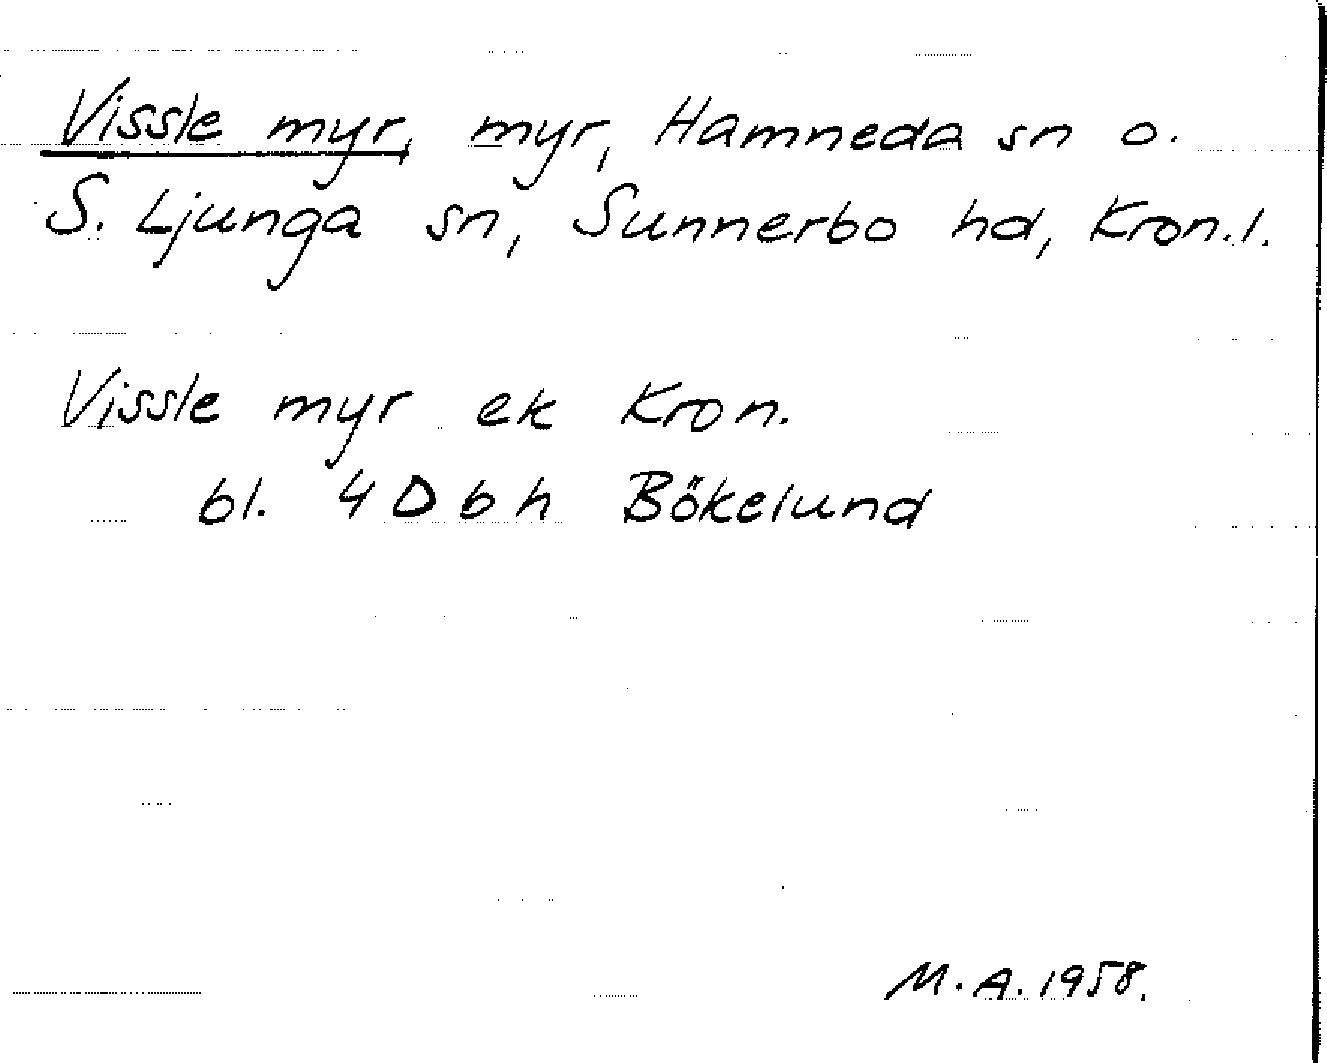 Vissle myr, myr, Hamneda sn o.
S. Ljunga sn, Sunnerbo hd, Kron.l.
Vissle myr ek Kron.
bl. 4 D b h Bökelund
M.A. 1958.